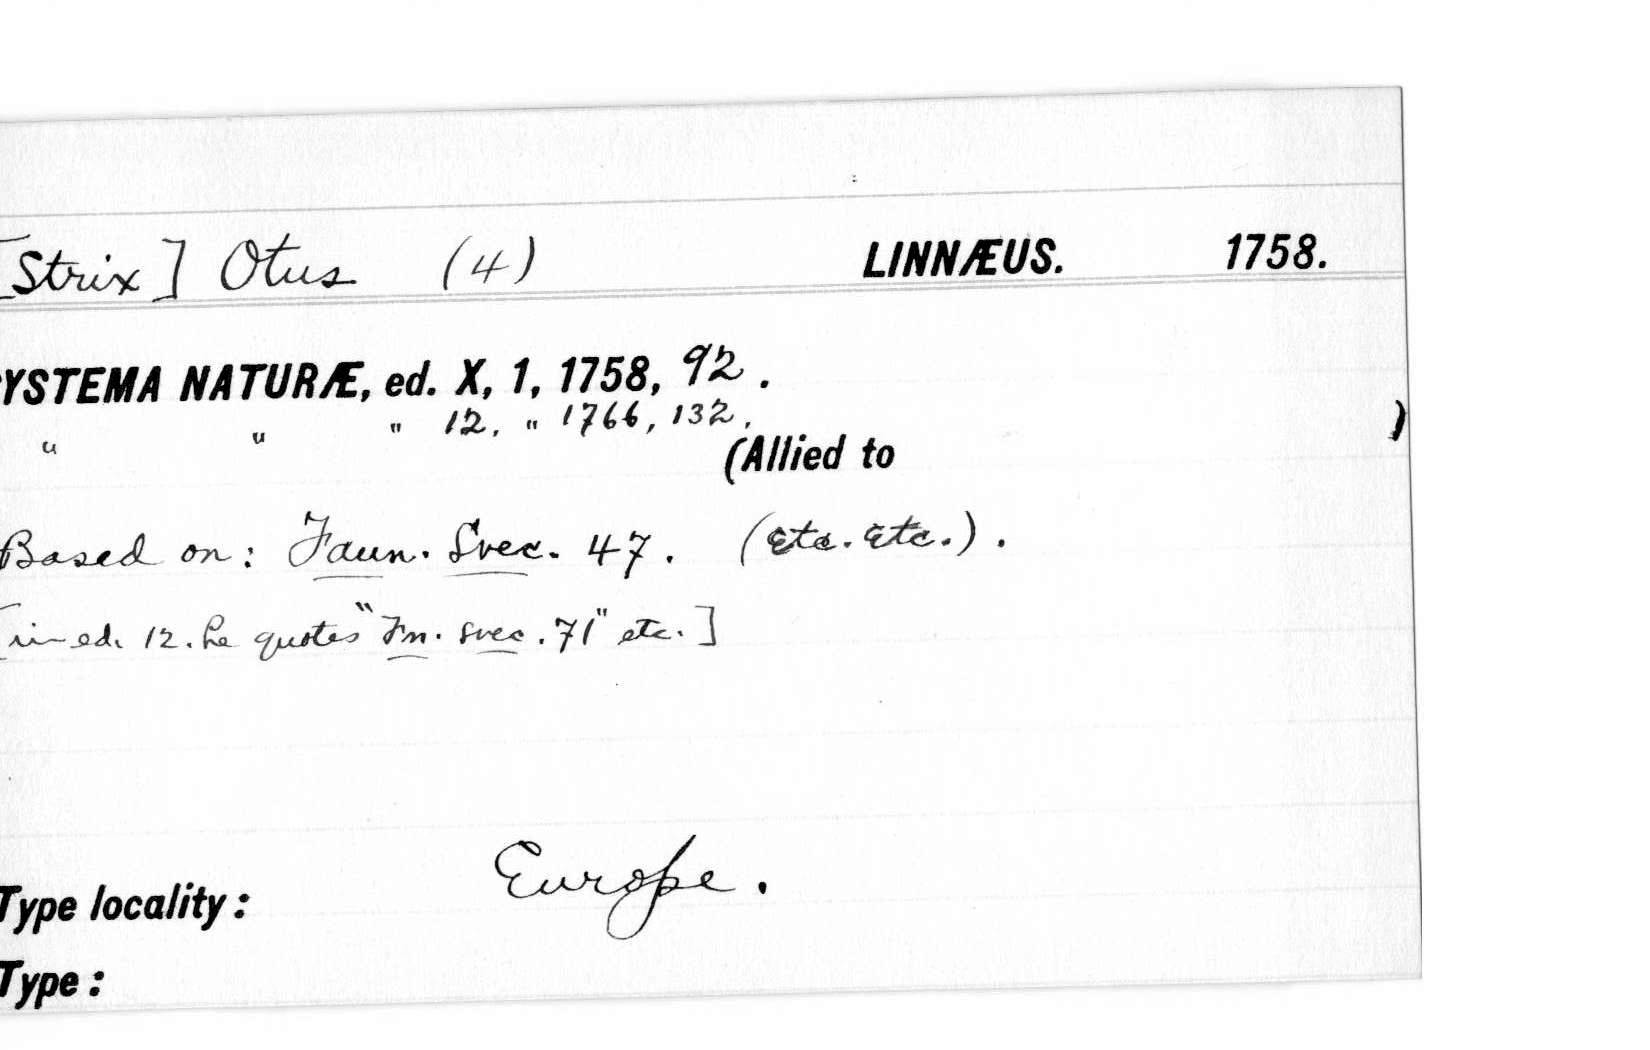 [Strix] Otus (4) LINNÆUS. 1758.
YSTEMA NATURÆ, ed. X, 1, 1758, 92.
" " " 12, " 1766, 132.
(Allied to )
Based on: Faun. Svec. 47. (etc. etc.).
[in ed. 12. he quotes "Fn. svec. 71" etc.]
Type locality: Europe.
Type: